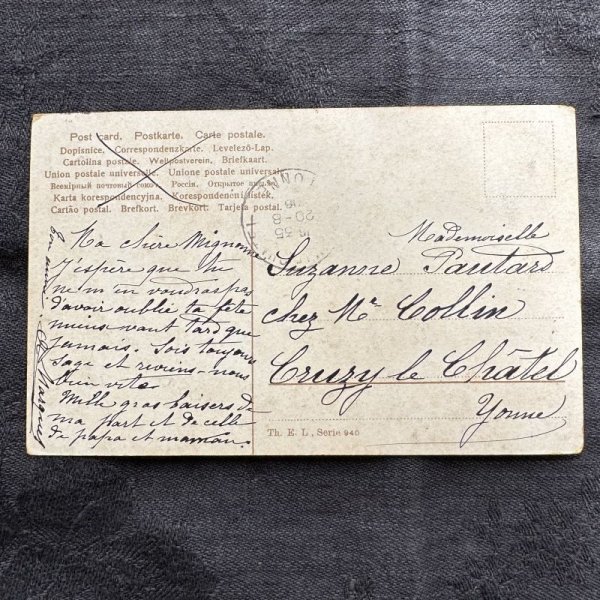 Post card. Postkarte. Carte postale.
Dopisnice. Correspondenzkarte. Levelező-Lap.
Cartolina postale. Weltpostverein. Briefkaart.
Union postale universelle. Unione postale universale.
Всемірный почтовый союзъ. Россія. Открытое письмо.
Karta korespondencyjna. Korespondenční lístek.
Cartão postal. Brefkort. Brevkort. Tarjeta postal.
Ma chère Mignonne
J'espère que tu
ne m'en voudras pas
d'avoir oublié ta fête
mieux vaut tard que
jamais. Sois toujours
sage et reviens-nous
bien vite
Mille gros baisers de
ma part et de celle
de papa et maman.
YONNE
20-8
Mademoiselle
Suzanne Pautard
chez Mr Collin
Cruzy le Châtel
Yonne
Th. E. L., Serie 940